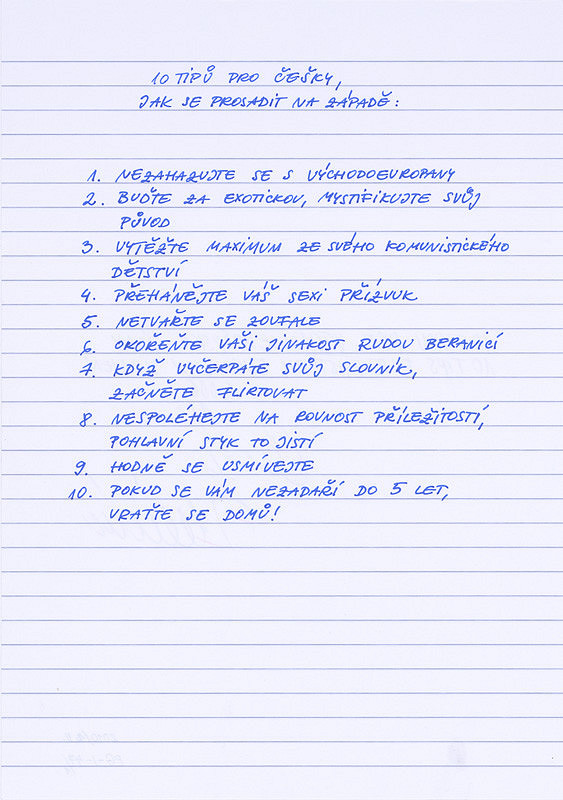 10 TIPŮ PRO ČEŠKY,
JAK SE PROSADIT NA ZÁPADĚ:
1. NEZAHAZUJTE SE S VÝCHODOEUROPANY
2. BUĎTE ZA EXOTICKOU, MYSTIFIKUJTE SVŮJ
PŮVOD
3. VYTĚŽTE MAXIMUM ZE SVÉHO KOMUNISTICKÉHO
DĚTSTVÍ
4. PŘEHÁNĚJTE VÁŠ SEXI PŘÍZVUK
5. NETVAŘTE SE ZOUFALE
6. OKOŘEŇTE VAŠI JINAKOST RUDOU BERANICÍ
7. KDYŽ VYČERPÁTE SVŮJ SLOVNÍK,
ZAČNĚTE FLIRTOVAT
8. NESPOLÉHEJTE NA ROVNOST PŘÍLEŽITOSTÍ,
POHLAVNÍ STYK TO JISTÍ
9. HODNĚ SE USMÍVEJTE
10. POKUD SE VÁM NEZADAŘÍ DO 5 LET,
VRAŤTE SE DOMŮ!